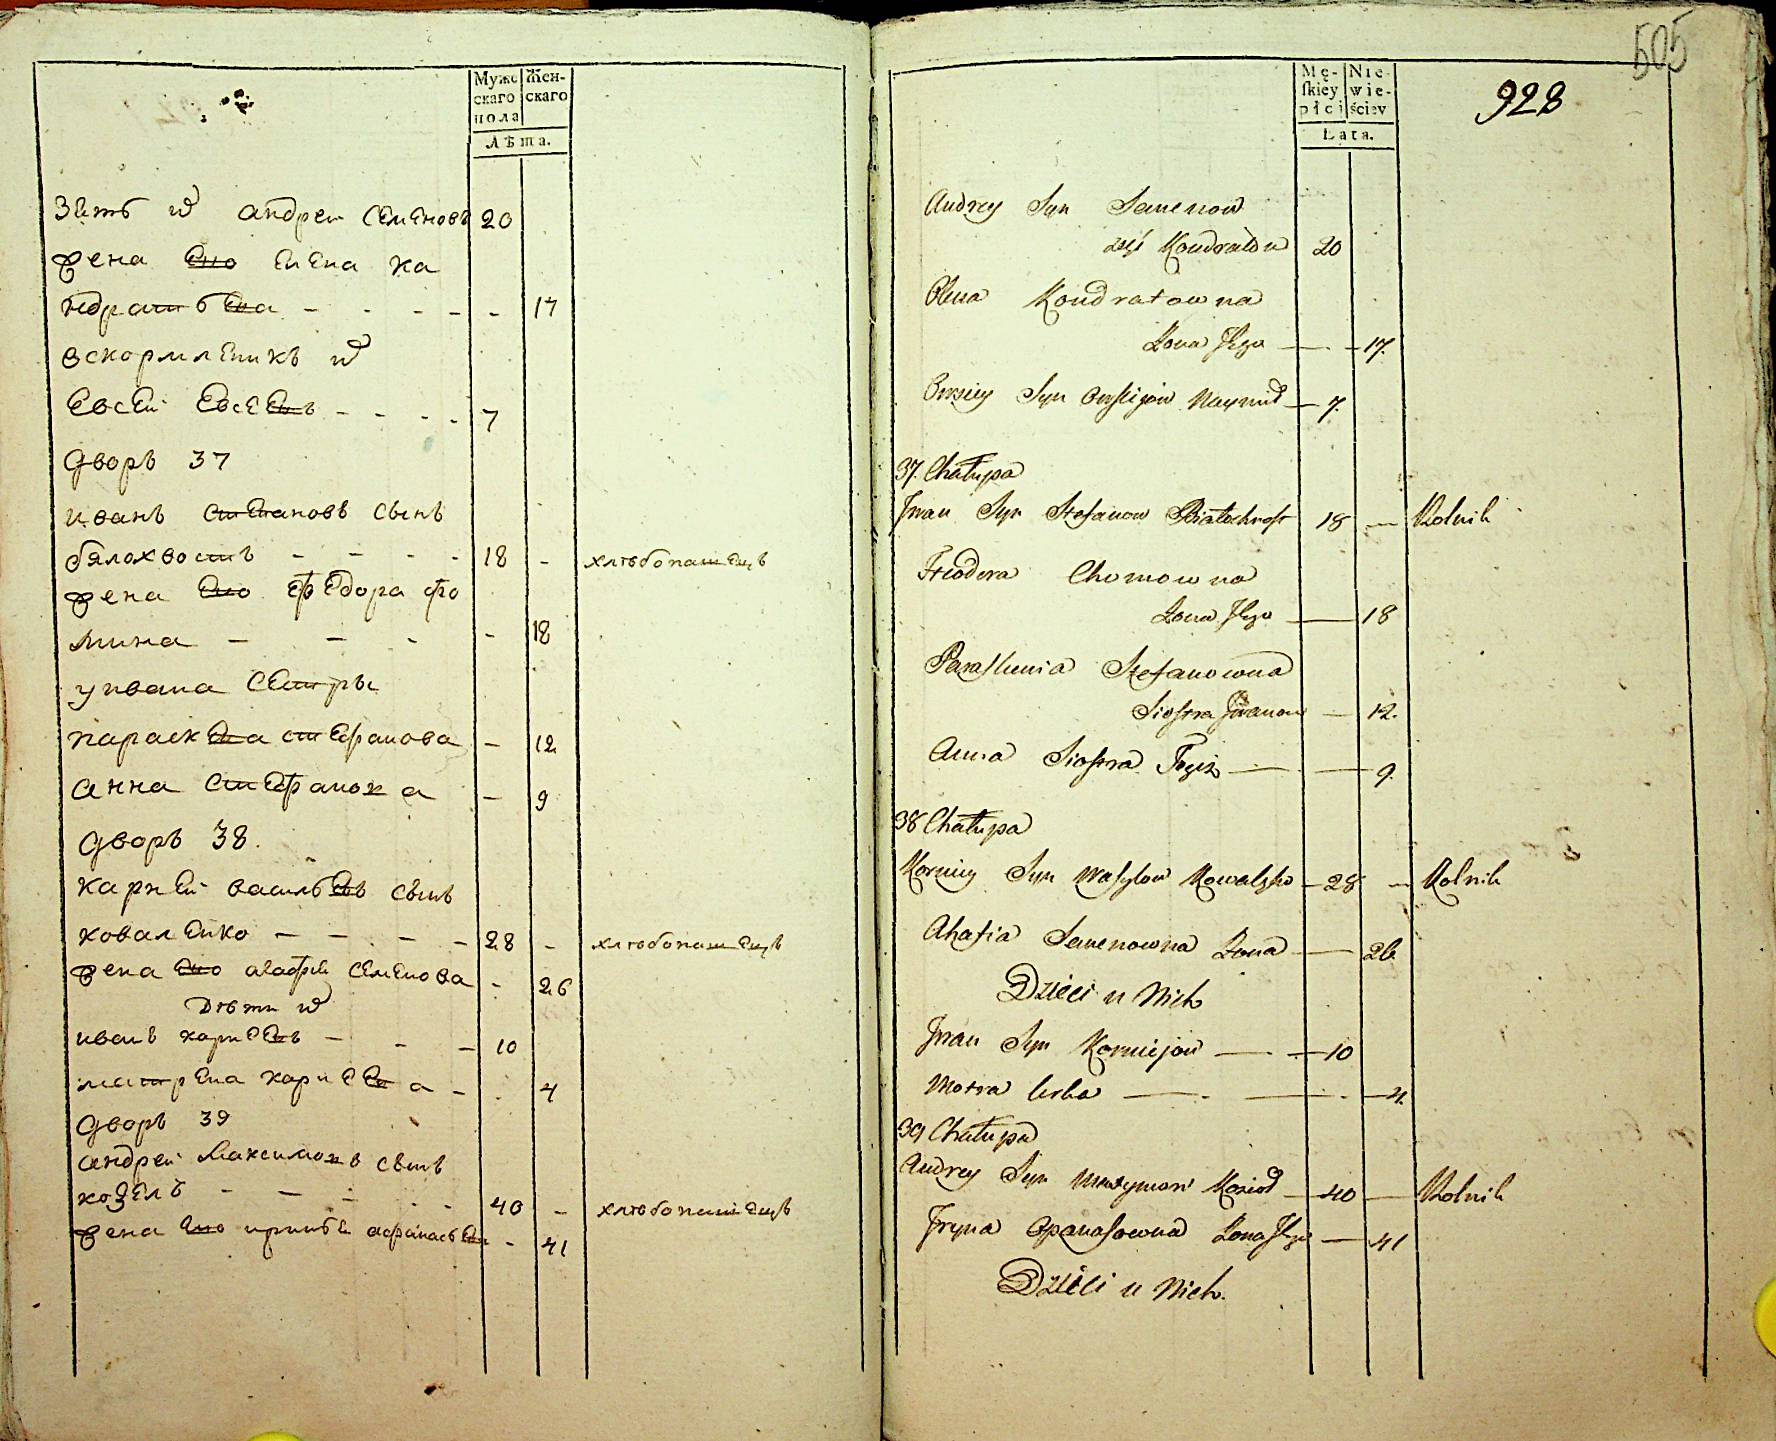 Мужс
скаго
пола
Жен-
скаго
Лѣта.
Зять и҃ андреи семеновъ 20
жена ево елена ка
ндратьева - - - - - 17
вскормленикъ и҃
Евсеи Евсеевъ - - - - 7
дворъ 37
иванъ степановъ сынъ
бялохвостъ - - - - 18 - хлѣбопашецъ
жена ево федора фо
мина - - - - 18
у ивана сестры
параскева стефанова - 12
анна стефанова - 9
дворъ 38.
карнеи васильевъ сынъ
коваленко - - - - 28 - хлѣбопашецъ
жена ево агафия семенова - 26
Дѣти и҃
иванъ карнеевъ - - - 10
матрена карнеева - - 4
дворъ 39
андреи Максимовъ сынъ
козелъ - - - - - 40 - хлѣбопашецъ
жена ево афанасьева - 41
505
928
Mę-
skiey
płci
Nie
wie-
ściey
Lata.
Andrey Syn Semenow
zięć Kondratow 20
Olena Kondratowna
Żona Jego — — 17.
Owsiey Syn Owsiejow — 7.
37. Chałupa
Jwan Syn Stefanow Białochwost 18 — Rolnik
Fteodora Chomowna
Żona Jego — 18
Paraskiewia Stefanowna
Siostra Jwanow — 12.
Anna Siostra Tegoż — — 9.
38 Chałupa
Korniey Syn Wasylow Kowalenko — 28 — Rolnik
Ahafia Semenowna Żona — 26
Dzieci u Nich
Jwan Syn Korniejow — — 10
Motra Corka — — — 4.
39 Chałupa
Andrey Syn Maxymow Kozioł — 40 — Rolnik
Jryna Opanasowna Żona Jego — 41
Dzieci u Nich.